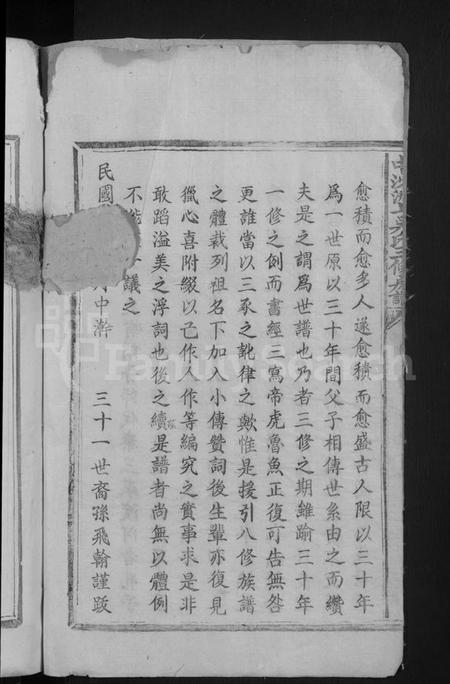 愈積而愈多人遂愈積而愈盛古人限以三十年
爲一世原以三十年間父子相傳世系由之而纘
夫是之謂爲世譜也乃者三修之期雖踰三十年
一修之例而書經三寫帝虎魯魚正復可告無咎
更誰當以三豕之訛律之歟惟是援引八修族譜
之體裁列祖名下加入小傳贊詞後生輩亦復見
獵心喜附綴以己作人作等編究之實事求是非
敢蹈溢美之浮詞也後之續是譜者尚無以體例
不 議之
民國 中澣 三十一世裔孫飛翰謹跋
FamilySearch